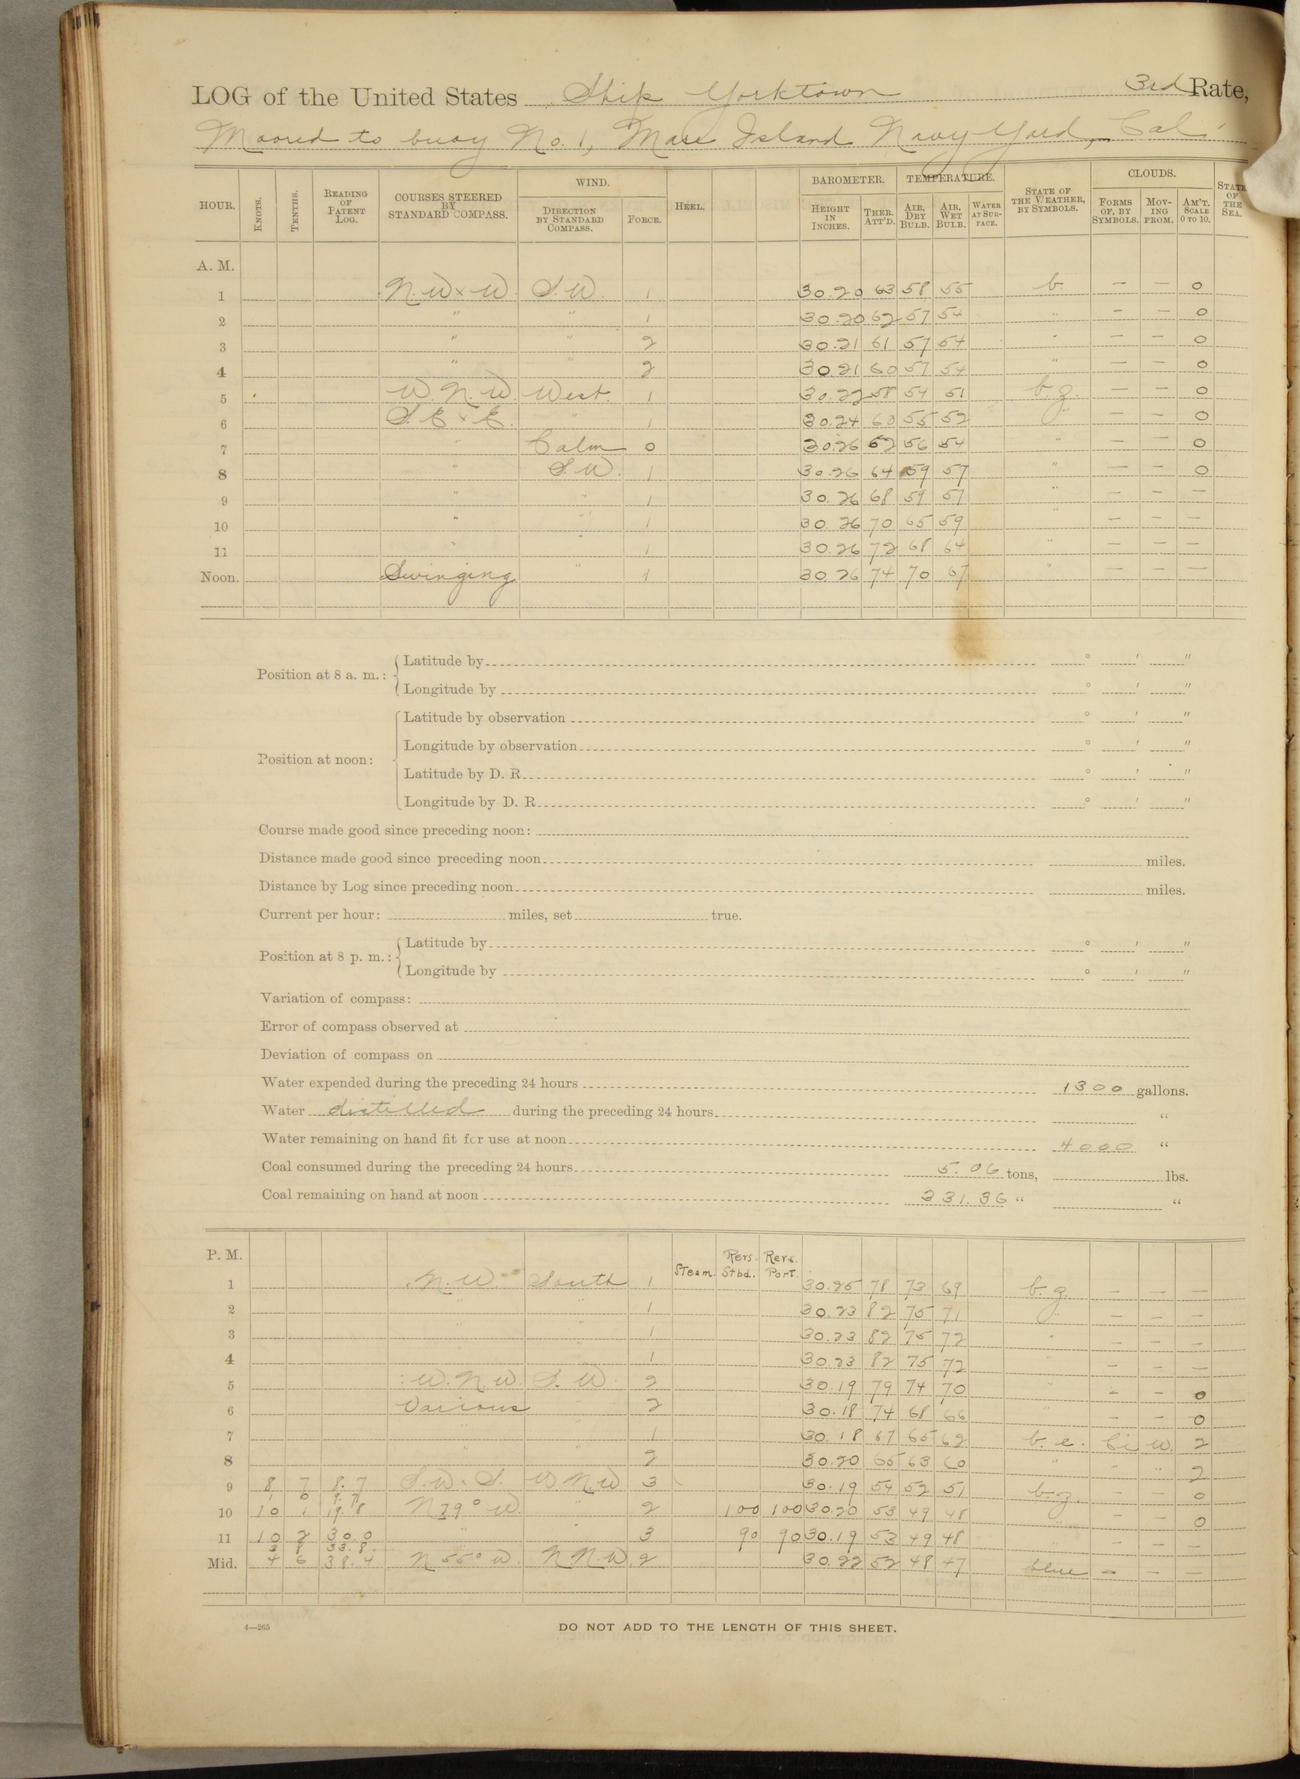 LOG of the United States Ship Yorktown 3rd Rate,
Moored to buoy No. 1, Mare Island Navy Yard, Cal.
HOUR. KNOTS. TENTHS. READING OF PATENT LOG. COURSES STEERED BY STANDARD COMPASS. WIND. DIRECTION BY STANDARD COMPASS. FORCE. HEEL. BAROMETER. HEIGHT IN INCHES. THER. ATT'D. TEMPERATURE. AIR, DRY BULB. AIR, WET BULB. WATER AT SURFACE. STATE OF THE WEATHER, BY SYMBOLS. CLOUDS. FORMS OF, BY SYMBOLS. MOVING FROM. AM'T. SCALE 0 TO 10. STATE OF THE SEA.
A. M.
1 N.W x W. S.W. 1 30.20 63 58 55 b. — — 0
2 " " 1 30.20 62 57 54 " — — 0
3 " " 2 30.21 61 57 54 " — — 0
4 " " 2 30.21 60 57 54 " — — 0
5 W.N.W. West. 1 30.22 58 54 51 b.z. — — 0
6 S.E x E. " 1 30.24 60 55 52 " — — 0
7 " Calm 0 30.26 62 56 54 " — — 0
8 " S.W. 1 30.26 64 59 57 " — — 0
9 " " 1 30.26 68 59 57 " — — —
10 " " 1 30.26 70 65 59 " — — —
11 " " 1 30.26 72 68 64 " — — —
Noon. Swinging " 1 30.26 74 70 67 " — — —
Position at 8 a. m.: Latitude by ° ' "
Longitude by ° ' "
Position at noon: Latitude by observation ° ' "
Longitude by observation ° ' "
Latitude by D. R. ° ' "
Longitude by D. R. ° ' "
Course made good since preceding noon:
Distance made good since preceding noon miles.
Distance by Log since preceding noon miles.
Current per hour: miles, set true.
Position at 8 p. m.: Latitude by ° ' "
Longitude by ° ' "
Variation of compass:
Error of compass observed at
Deviation of compass on
Water expended during the preceding 24 hours 1300 gallons.
Water distilled during the preceding 24 hours "
Water remaining on hand fit for use at noon 4000 "
Coal consumed during the preceding 24 hours 5.06 tons, lbs.
Coal remaining on hand at noon 231.36 " "
P. M. Steam. Revs. Stbd. Revs. Port.
1 N.W. South 1 30.25 78 73 69 b.z. — — —
2 " " 1 30.23 82 75 71 " — — —
3 " " 1 30.23 82 75 72 " — — —
4 " " 1 30.23 82 75 72 " — — —
5 W.N.W. S.W. 2 30.19 79 74 70 " — — 0
6 Various " 2 30.18 74 68 66 " — — 0
7 " " 1 30.18 67 65 62 b.c. Ci W. 2
8 " " 2 30.20 65 63 60 " " " 2
9 8 7 8.7 S.W. S. W N.W 3 30.19 54 52 51 b.z. — — 0
1 0 9.7
10 10 1 19.8 N 79° W. " 2 100 100 30.20 53 49 48 " — — 0
11 10 2 30.0 " " 3 90 90 30.19 53 49 48 " — — —
3 8 33.8
Mid. 4 6 38.4 N 55° W. N N.W. 2 30.22 52 48 47 blue — — —
4—265 DO NOT ADD TO THE LENGTH OF THIS SHEET.